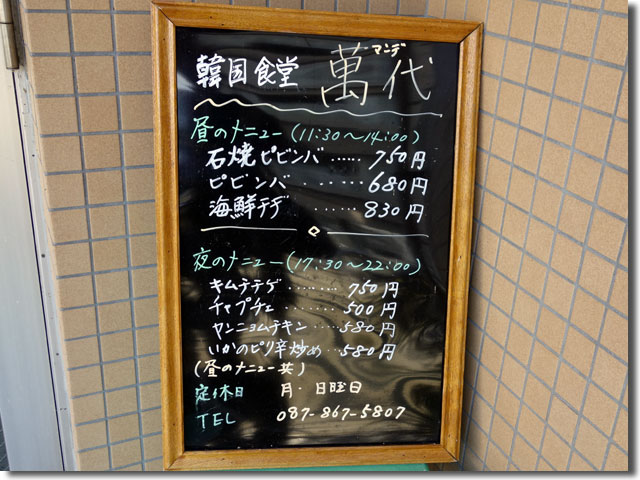 韓国食堂 萬代
マンデ
昼のメニュー(11:30〜14:00)
石焼ピビンバ ...... 750円
ピビンバ ...... 680円
海鮮チヂ ...... 830円
夜のメニュー(17:30〜22:00)
キムチチゲ ...... 750円
チャプチェ ...... 500円
ヤンニョムチキン ..... 580円
いかのピリ辛炒め ... 580円
(昼のメニュー共)
定休日 月・日曜日
TEL 087-867-5807